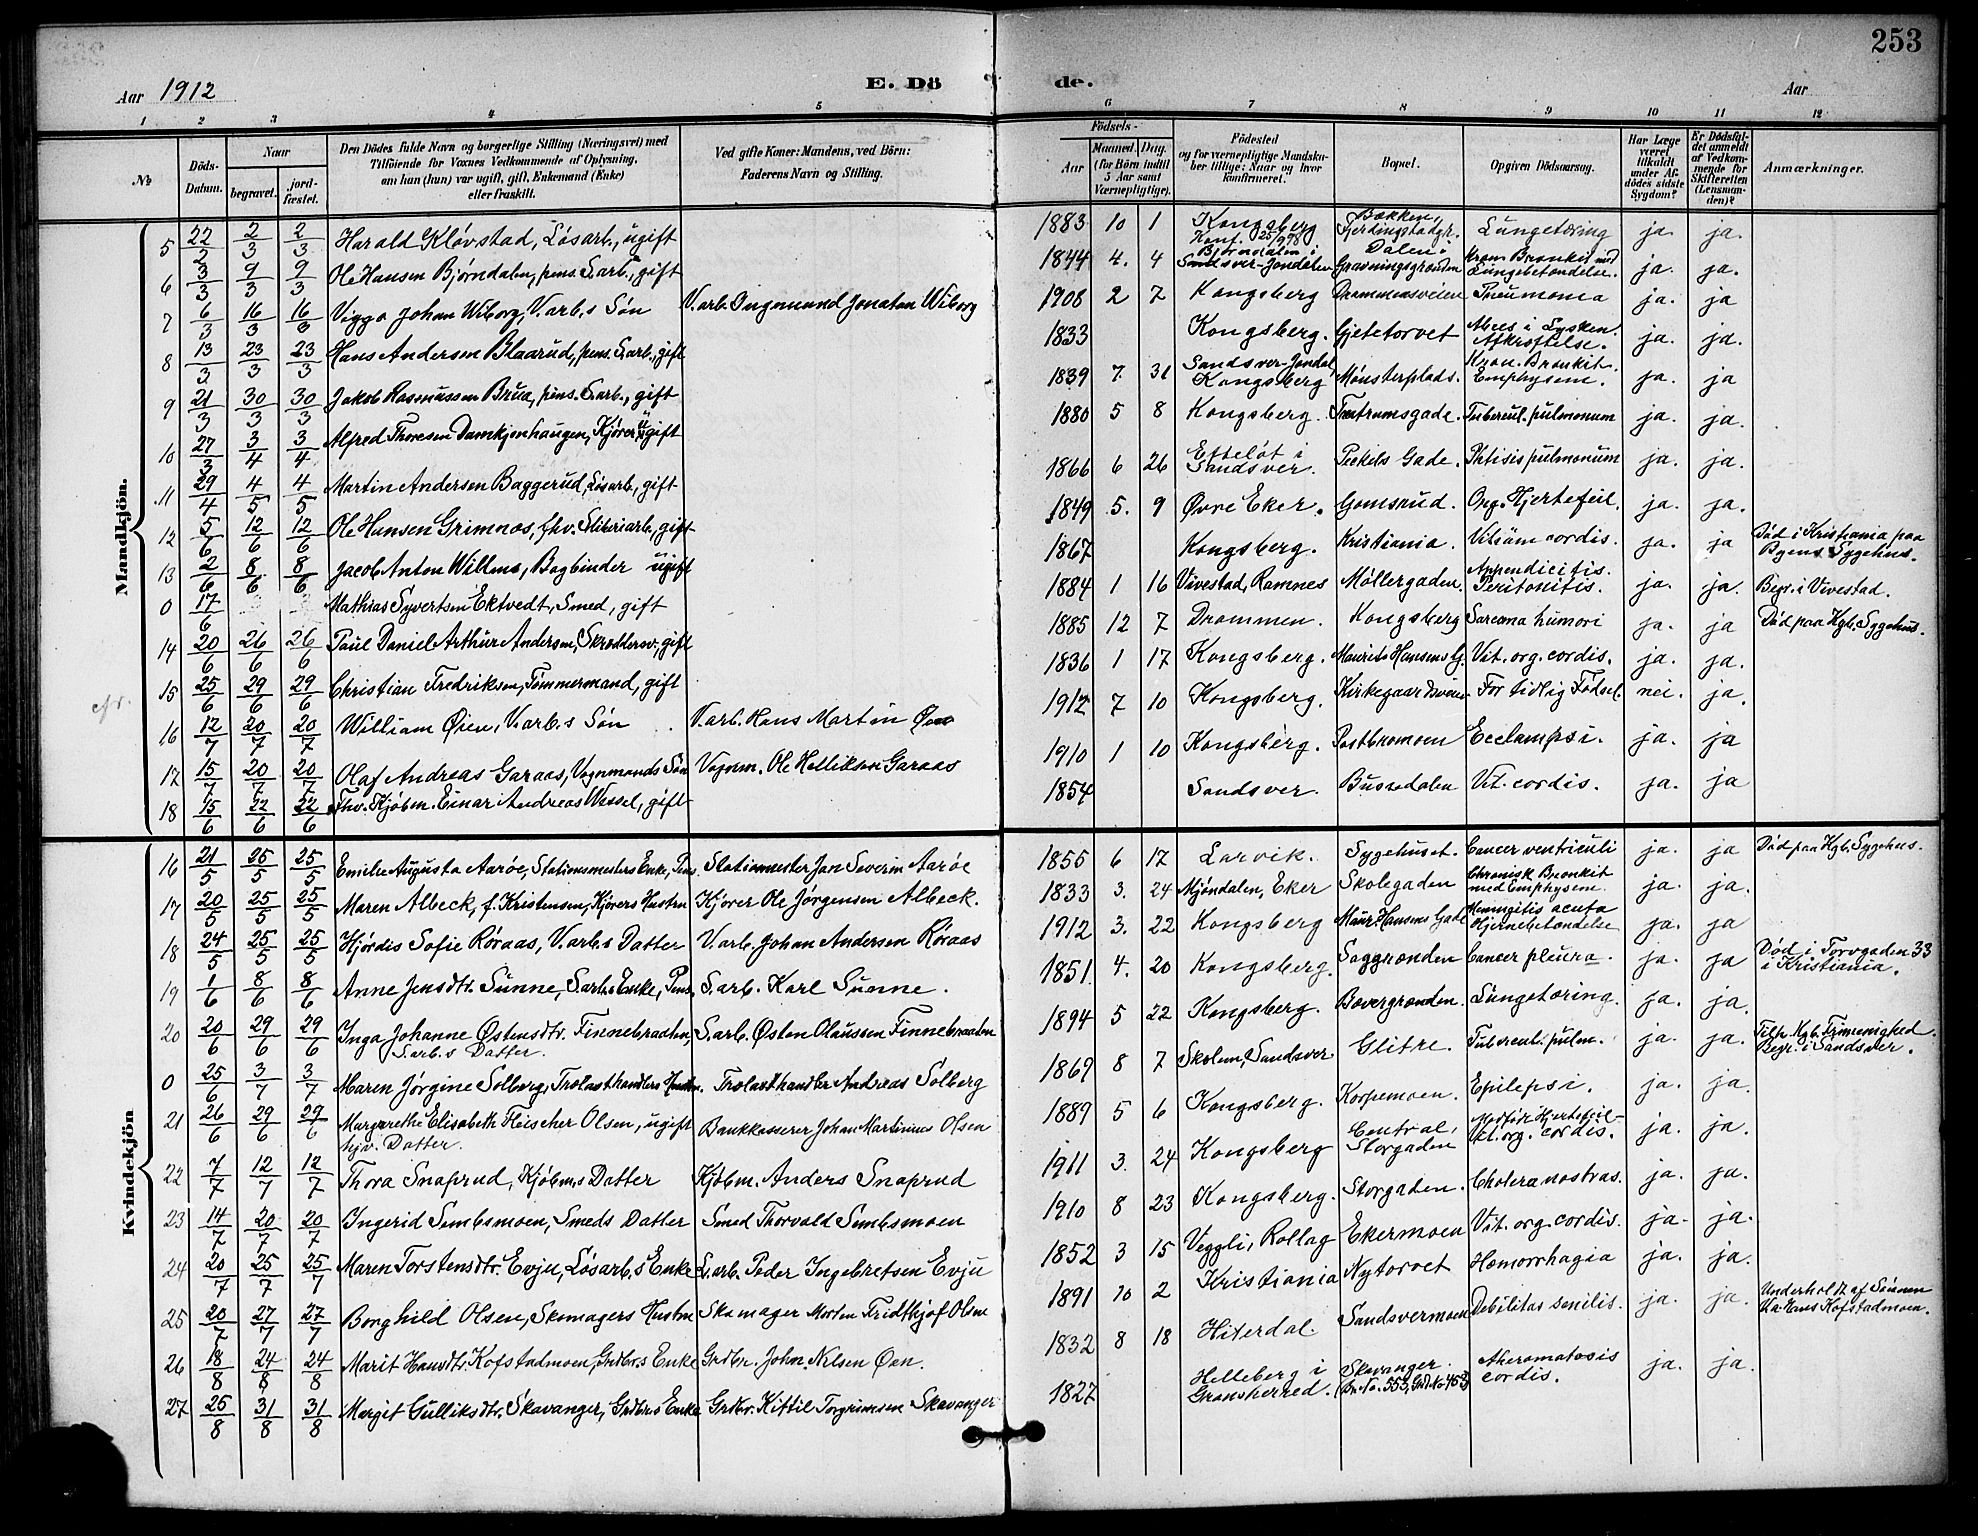 253
Aar 1912
E. Dö
de.
Aar
1 2 3 4 5 6 7 8 9 10 11 12
No
Döds-Datum.
Naar
begravet.
jord-fæstet.
Den Dödes fulde Navn og borgerlige Stilling (Næringsvei) med Tilföiende for Voxnes Vedkommende af Oplysning, om han (hun) var ugift, gift, Enkemand (Enke) eller fraskilt.
Ved gifte Koner: Mandens, ved Börn: Faderens Navn og Stilling.
Födsels-
Aar
Maaned. Dag. (for Börn indtil 5 Aar samt Værnepligtige).
Födested og for værnepligtige Mandskaber tillige: Naar og hvor konfirmeret.
Bopæl.
Opgiven Dödsaarsag.
Har Læge været tilkaldt under Afdödes sidste Sygdom?
Er Dödsfaldet anmeldt af Vedkommende for Skifteretten (Lensmanden)?
Anmærkninger.
Mandkjön.
5 22/2 2/3 2/3 Harald Kløvstad, Løsarb., ugift 1883 10 1 Kongsberg Konf. 25/9 98 Bakken, Fjerdingstadgr. Lungetæring ja. ja.
6 3/3 9/3 9/3 Ole Hansen Bjørndalen, pens. S.arb., gift 1844 4. 4 Bjørndalen i Sandsver-Jondalen Dalen i Gravningsgrænden Kron. Bronkit med Lungebetændelse. ja. ja.
7 6/3 16/3 16/3 Viggo Johan Wiborg, V.arb.s Søn V.arb. Ingmund Jonatan Wiborg 1908 2 7 Kongsberg Drammensveien Pneumonia ja. ja
8 13/3 23/3 23/3 Hans Andersen Blaarud, pens. S.arb., gift 1833 Kongsberg. Gjetetorvet Absces i Lysken. Afkræftelse. ja. ja.
9 21/3 30/3 30/3 Jakob Rasmussen Brua, pens. S.arb., gift 1839 7. 31 Sandsver-Jondal, Kongsberg Mønsterplads. Kron. Bronkit. Emphysem. ja. ja
10 27/3 3/4 3/4 Alfred Thoresen Damkjenhaugen, Kjører ugift 1880 5 8 Kongsberg. Tubercul. pulmonum ja. ja.
11 29/4 4/5 4/5 Martin Andersen Baggerud, Løsarb., gift 1866 6 26 Etteløt i Sandsver. Peckels Gade. Phtisis pulmonum ja. ja.
12 5/6 12/6 12/6 Ole Hansen Grimnes, fhv. Sliberiarb., gift 1849 5. 9 Øvre Eker. Gomsrud. Org. Hjertefeil. ja. ja.
13 2/6 8/6 8/6 Jacob Anton Willms, Bogbinder ugift 1867 Kongsberg. Kristiania. Vitium cordis. ja. ja Død i Kristiania paa Byens Sygehus.
0 17/6 Mathias Syvertsen Ektvedt, Smed, gift 1884 1 16 Vivestad, Ramnes Møllergaden. Appendicitis. Peritonitis. ja. ja. Begr. i Vivestad.
14 20/6 26/6 26/6 Paul Daniel Arthur Andersen, Skræddersv., gift 1885 12 7 Drammen. Kongsberg Sarcoma humori ja. ja Død paa Kgb. Sygehus.
15 25/6 29/6 29/6 Christian Fredriksen, Tømmermand, gift 1836 1 17 Kongsberg. Maurits Hansens G. Vit. org. cordis. ja. ja.
cfr.
16 12/7 20/7 20/7 William Øien, V.arb.s Søn V.arb. Hans Martin Øien 1912 7 10 Kongsberg. Kirkegaardsveien For tidlig Fødsel. nei. ja.
17 15/7 20/7 20/7 Olaf Andreas Garaas, Vognmands Søn Vognm. Ole Helliksen Garaas 1910 1 10 Kongsberg. Postbromoen Ecclampsi. ja. ja
18 15/6 22/6 22/6 Fhv. Kjøbm. Einar Andreas Wessel, gift 1854 Sandsver. Bussedalen Vit. cordis. ja. ja
Kvindekjön
16 21/5 25/5 25/5 Emilie Augusta Aarøe, Stationsmesters Enke, Pens. Stationmester Jan Severin Aarøe 1855 6 17 Larvik. Sygehuset. Cancer ventriculi ja. ja Død paa Kgb. Sygehus.
17 20/5 25/5 25/5 Maren Albeck, f. Kristensen, Kjørers Hustru Kjører Ole Jørgensen Albeck. 1833 3. 24 Mjøndalen, Eker Skolegaden Chronisk Bronkit med Emphysem. ja. ja.
18 24/5 25/5 25/5 Hjørdis Sofie Røraas, V.arb.s Datter V.arb. Johan Andersen Røraas 1912 3. 22 Kongsberg Maur. Hansens Gade Meningitis acuta Hjernebetændelse ja. ja
19 1/6 8/6 8/6 Anne Jensdtr. Sunne, S.arb.s Enke, Pens. S.arb. Karl Sunne. 1851 4. 20 Kongsberg. Saggrænden Cancer pleura. ja. ja Død i Torvgaden 33 i Kristiania.
20 20/6 29/6 29/6 Inga Johanne Østensdtr. Finnebraaten, S.arb.s Datter. S.arb. Østen Olaussen Finnebraaten 1894 5 22 Kongsberg. Bævergrænden. Lungetæring. ja. ja.
0 25/6 3/7 3/7 Maren Jørgine Solberg, Trælasthandlers Hustru. Trælasthandler Andreas Solberg 1869 8 7 Skolem, Sandsver Glitre. Tubercul. pulm. ja. ja. Tilh. Kgb. Frimenighed. Begr. i Sandsver.
21 26/6 29/6 29/6 Margarethe Elisabeth Fleischer Olsen, ugift hjv. Datter. Bankkasserer Johan Martinius Olsen 1889 5 6 Kongsberg. Korpemoen. Epilepsi. ja. ja.
22 7/7 12/7 12/7 Thora Snaprud, Kjøbm.s Datter Kjøbm. Anders Snaprud 1911 3. 24 Kongsberg Central, Storgaden Medfødt Hjertefeil- Vit. org. cordis. ja. ja.
23 14/7 20/7 20/7 Ingerid Sembsmoen, Smeds Datter Smed Thorvald Sembsmoen 1910 8 23 Kongsberg. Storgaden. Cholera nostras. ja. ja.
24 20/7 25/7 25/7 Maren Torstensdtr. Evju, Løsarb.s Enke L.arb. Peder Ingebretsen Evju 1852 3 15 Veggli, Rollag Ekermoen Vit. org. cordis. ja. ja.
25 20/7 27/7 27/7 Borghild Olsen, Skomagers Hustru Skomager Morten Fridthjof Olsen 1891 10 2 Kristiania Nytorvet Hæmorrhagia ja. ja.
26 18/8 24/8 24/8 Marit Hansdtr. Kofstadmoen, Grdbr.s Enke Grdbr. John Nilsen Øen. 1832 8 18 Hiterdal. Sandsvermoen Debilitas senilis. ja. ja. Underholdt af Sønnen V.a. Hans Kofstadmoen.
27 25/8 31/8 31/8 Margit Gulliksdtr. Skavanger, Grdbr.s Enke Grdbr. Kittil Torgrimsen Skavanger 1827 Helleberg i Gransherred. Skavanger. (Br.No. 553, Grd.No 453) Atheromatosis cordis. ja. ja.